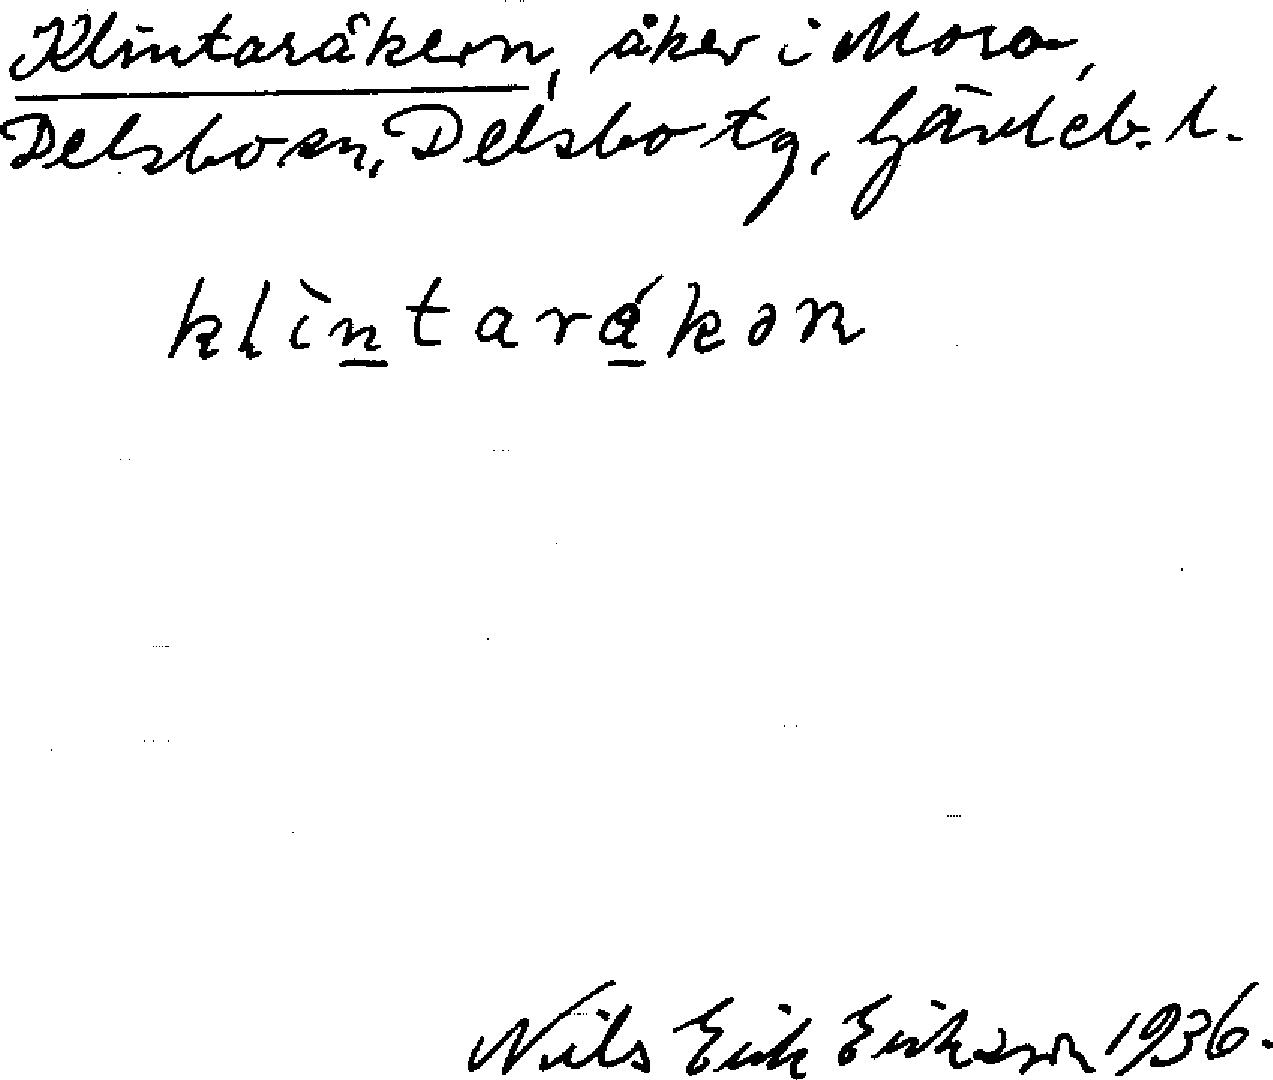 Klintaråkern, åker i Mora,
Delsbo sn, Delsbo tg, Gävleb. l.
klìntarákən
Nils Erik Erikson 1936.